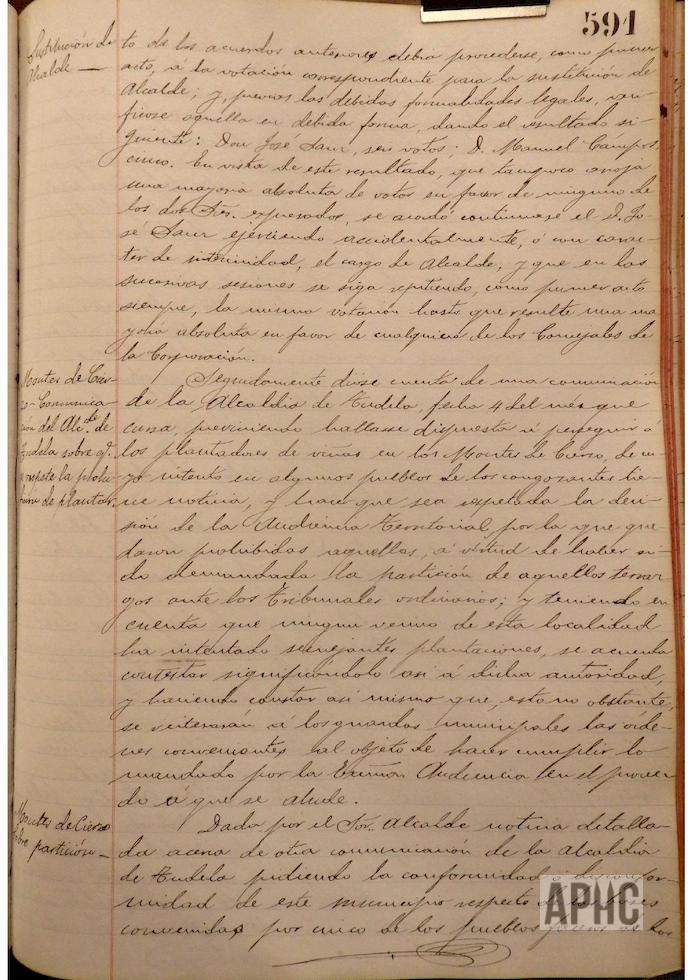 591
Sustitución de
Alcalde —
to de los acuerdos anteriores debía procederse, como primer
acto, á la votación correspondiente para la sustitución de
Alcalde; y, previas las debidas formalidades legales, veri-
ficose aquella en debida forma, dando el resultado si-
guiente: Don José Saur, seis votos; D. Manuel Cámpos,
cinco. En vista de este resultado, que tampoco arroja
una mayoria absoluta de votos en favor de ninguno de
los dos Sres. expresados, se acordó continuase el D. Jo-
sé Saur ejerciendo accidentalmente, ó con carac-
ter de interinidad, el cargo de Alcalde, y que en las
sucesivas sesiones se siga repitiendo, como primer acto
siempre, la misma votación hasta que resulte una ma
yoria absoluta en favor de cualquiera de los Concejales de
la Corporación.
Montes de Cier-
zo - Comunica-
ción del Alcde. de
Tudela sobre q.
se respete la prohi-
bición de plantar.
Seguidamente dióse cuenta de una comunicación
de la Alcaldia de Tudela, fecha 4 del més que
cursa, previniendo hallarse dispuesta á perseguir á
los plantadores de viñas en los Montes de Cierzo, de cu-
yo intento en algunos pueblos de los congozantes tie-
ne noticia, y hacer que sea respetada la deci-
sión de la Audiencia Territorial por la que que-
daron prohibidas aquellas, á virtud de haber si-
do demandada la partición de aquellos terraz-
gos ante los Tribunales ordinarios; y teniendo en
cuenta que ningun vecino de esta localidad
ha intentado semejantes plantaciones, se acuerda
contestar significándolo asi á dicha autoridad,
y haciendo constar asi mismo que, esto no obstante,
se reiterarán á los guardas municipales las órde-
nes convenientes al objeto de hacer cumplir lo
mandado por la Excma. Audiencia en el provei-
do á que se alude.
Montes de Cierzo
sobre partición —
Dada por el Sor. Alcalde noticia detalla-
da acerca de otra comunicación de la Alcaldia
de Tudela pidiendo la conformidad ó disconfor-
midad de este municipio respecto de las bases
convenidas por cinco de los pueblos
APHC